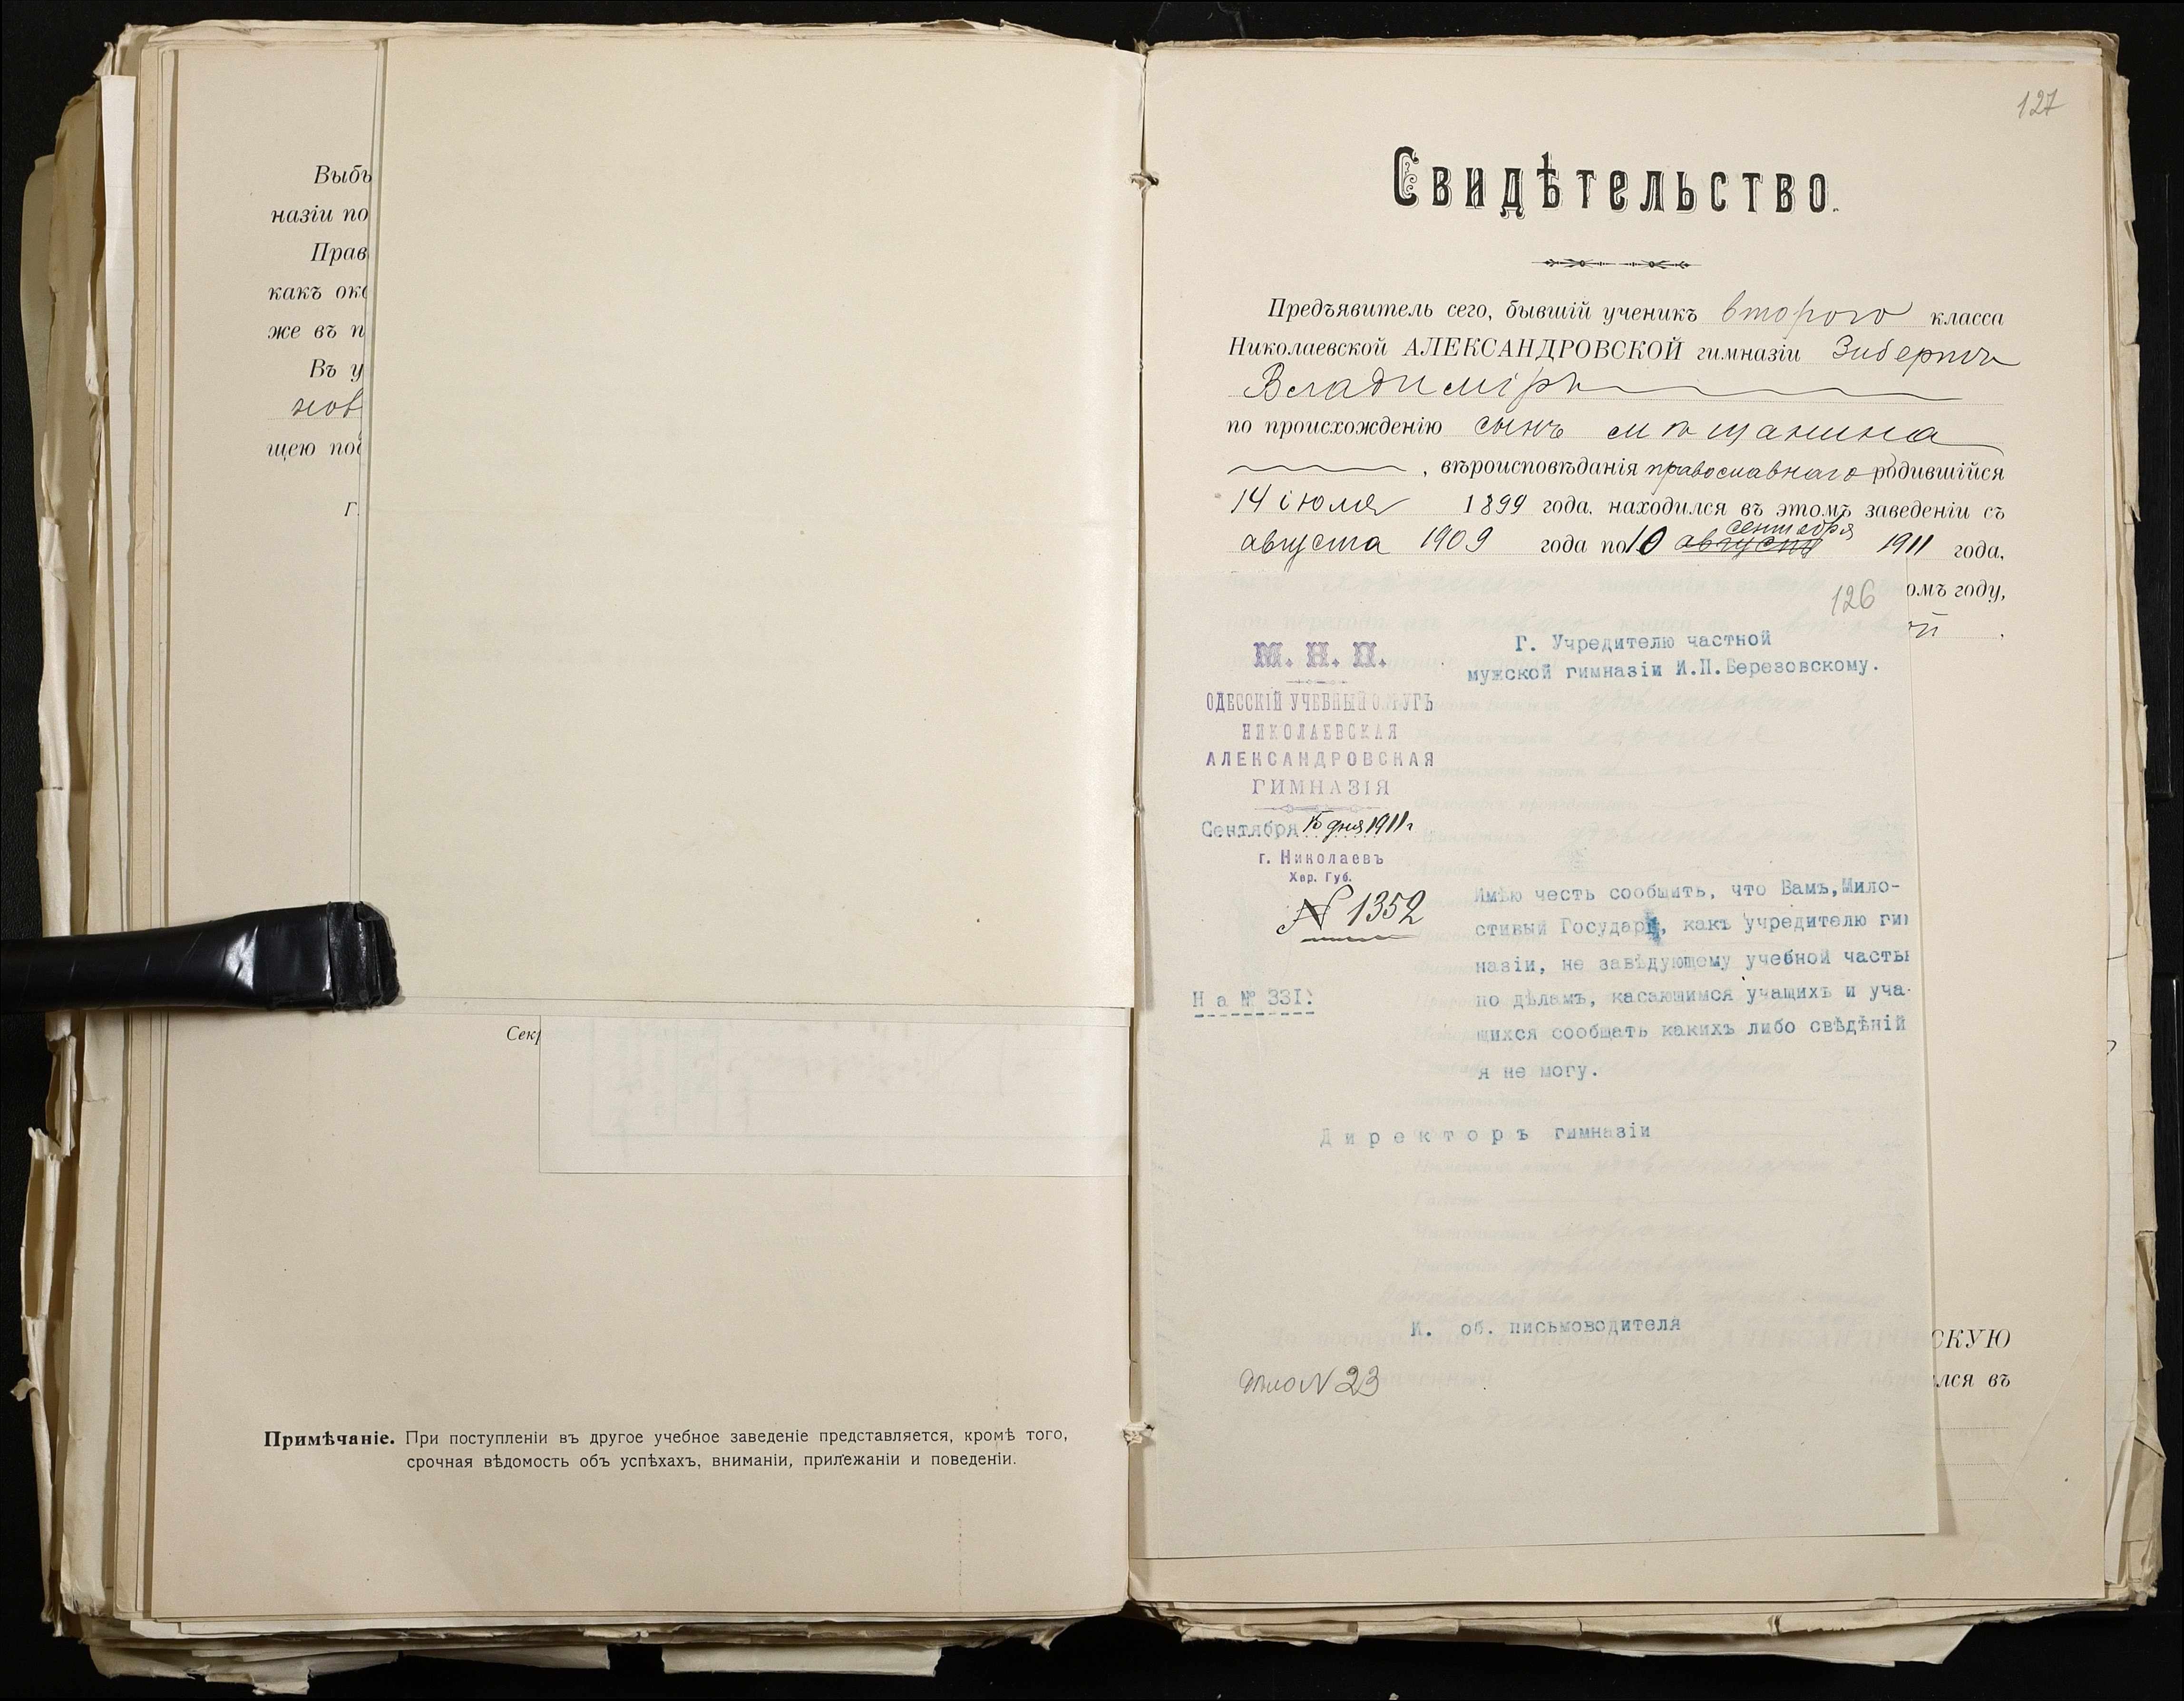 Выбы
назіи по
Прав
какъ око
же въ п
Въ у
нов
щею под
г.
Секр
Примѣчаніе. При поступленіи въ другое учебное заведеніе представляется, кромѣ того,
срочная вѣдомость объ успѣхахъ, вниманіи, прилежаніи и поведеніи.
127
Свидѣтельство.
Предъявитель сего, бывшій ученикъ второго класса
Николаевской АЛЕКСАНДРОВСКОЙ гимназіи Зибертъ
Владиміръ
по происхожденію сынъ мѣщанина
, вѣроисповѣданія православнаго родившійся
14 іюля 1899 года, находился въ этомъ заведеніи съ
сентября
августа 1909 года по 10 августа 1911 года,
омъ году,
126
ой .
Г. Учредителю частной
мужской гимназіи И.П.Березовскому.
М. Н. П.
ОДЕССКІЙ УЧЕБНЫЙ ОКРУГЪ
НИКОЛАЕВСКАЯ
АЛЕКСАНДРОВСКАЯ
ГИМНАЗІЯ
Сентября 15 дня 1911 г
г. Николаевъ
Хер. Губ.
N 1352
На № 331:
Имѣю честь сообщить, что Вамъ, Мило-
стивый Государь, какъ учредителю гим
назіи, не завѣдующему учебной частью
по дѣламъ, касающимся учащихъ и уча-
щихся сообщать какихъ либо свѣдѣній
я не могу.
Директоръ гимназіи
И. об. письмоводителя
дѣло N 23
СКУЮ
лся въ